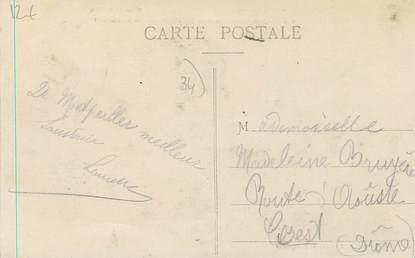 12€
CARTE POSTALE
34
De Montpellier meilleur
Souvenir
Mademoiselle
Madeleine
Route d'Aouste
Crest
(Drôme)